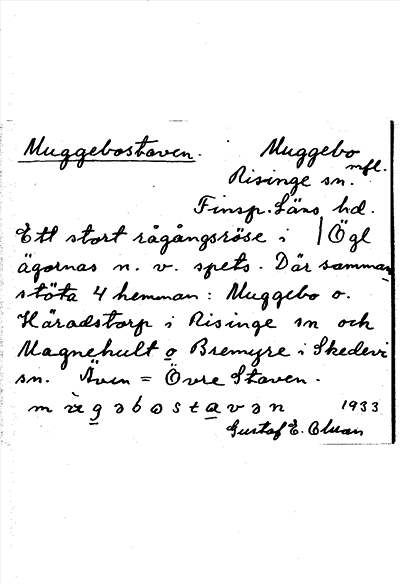 Muggebostaven. Muggebo
mfl.
Risinge sn.
Finsp. Läns hd.
Ett stort rågångsröse i | Ögl
ägornas n. v. spets. Där samman
stöta 4 hemman: Muggebo o.
Häradstorp i Risinge sn och
Magnehult o Bremyre i Skedevi
sn. Även = Övre Staven.
1933
Gustaf E.